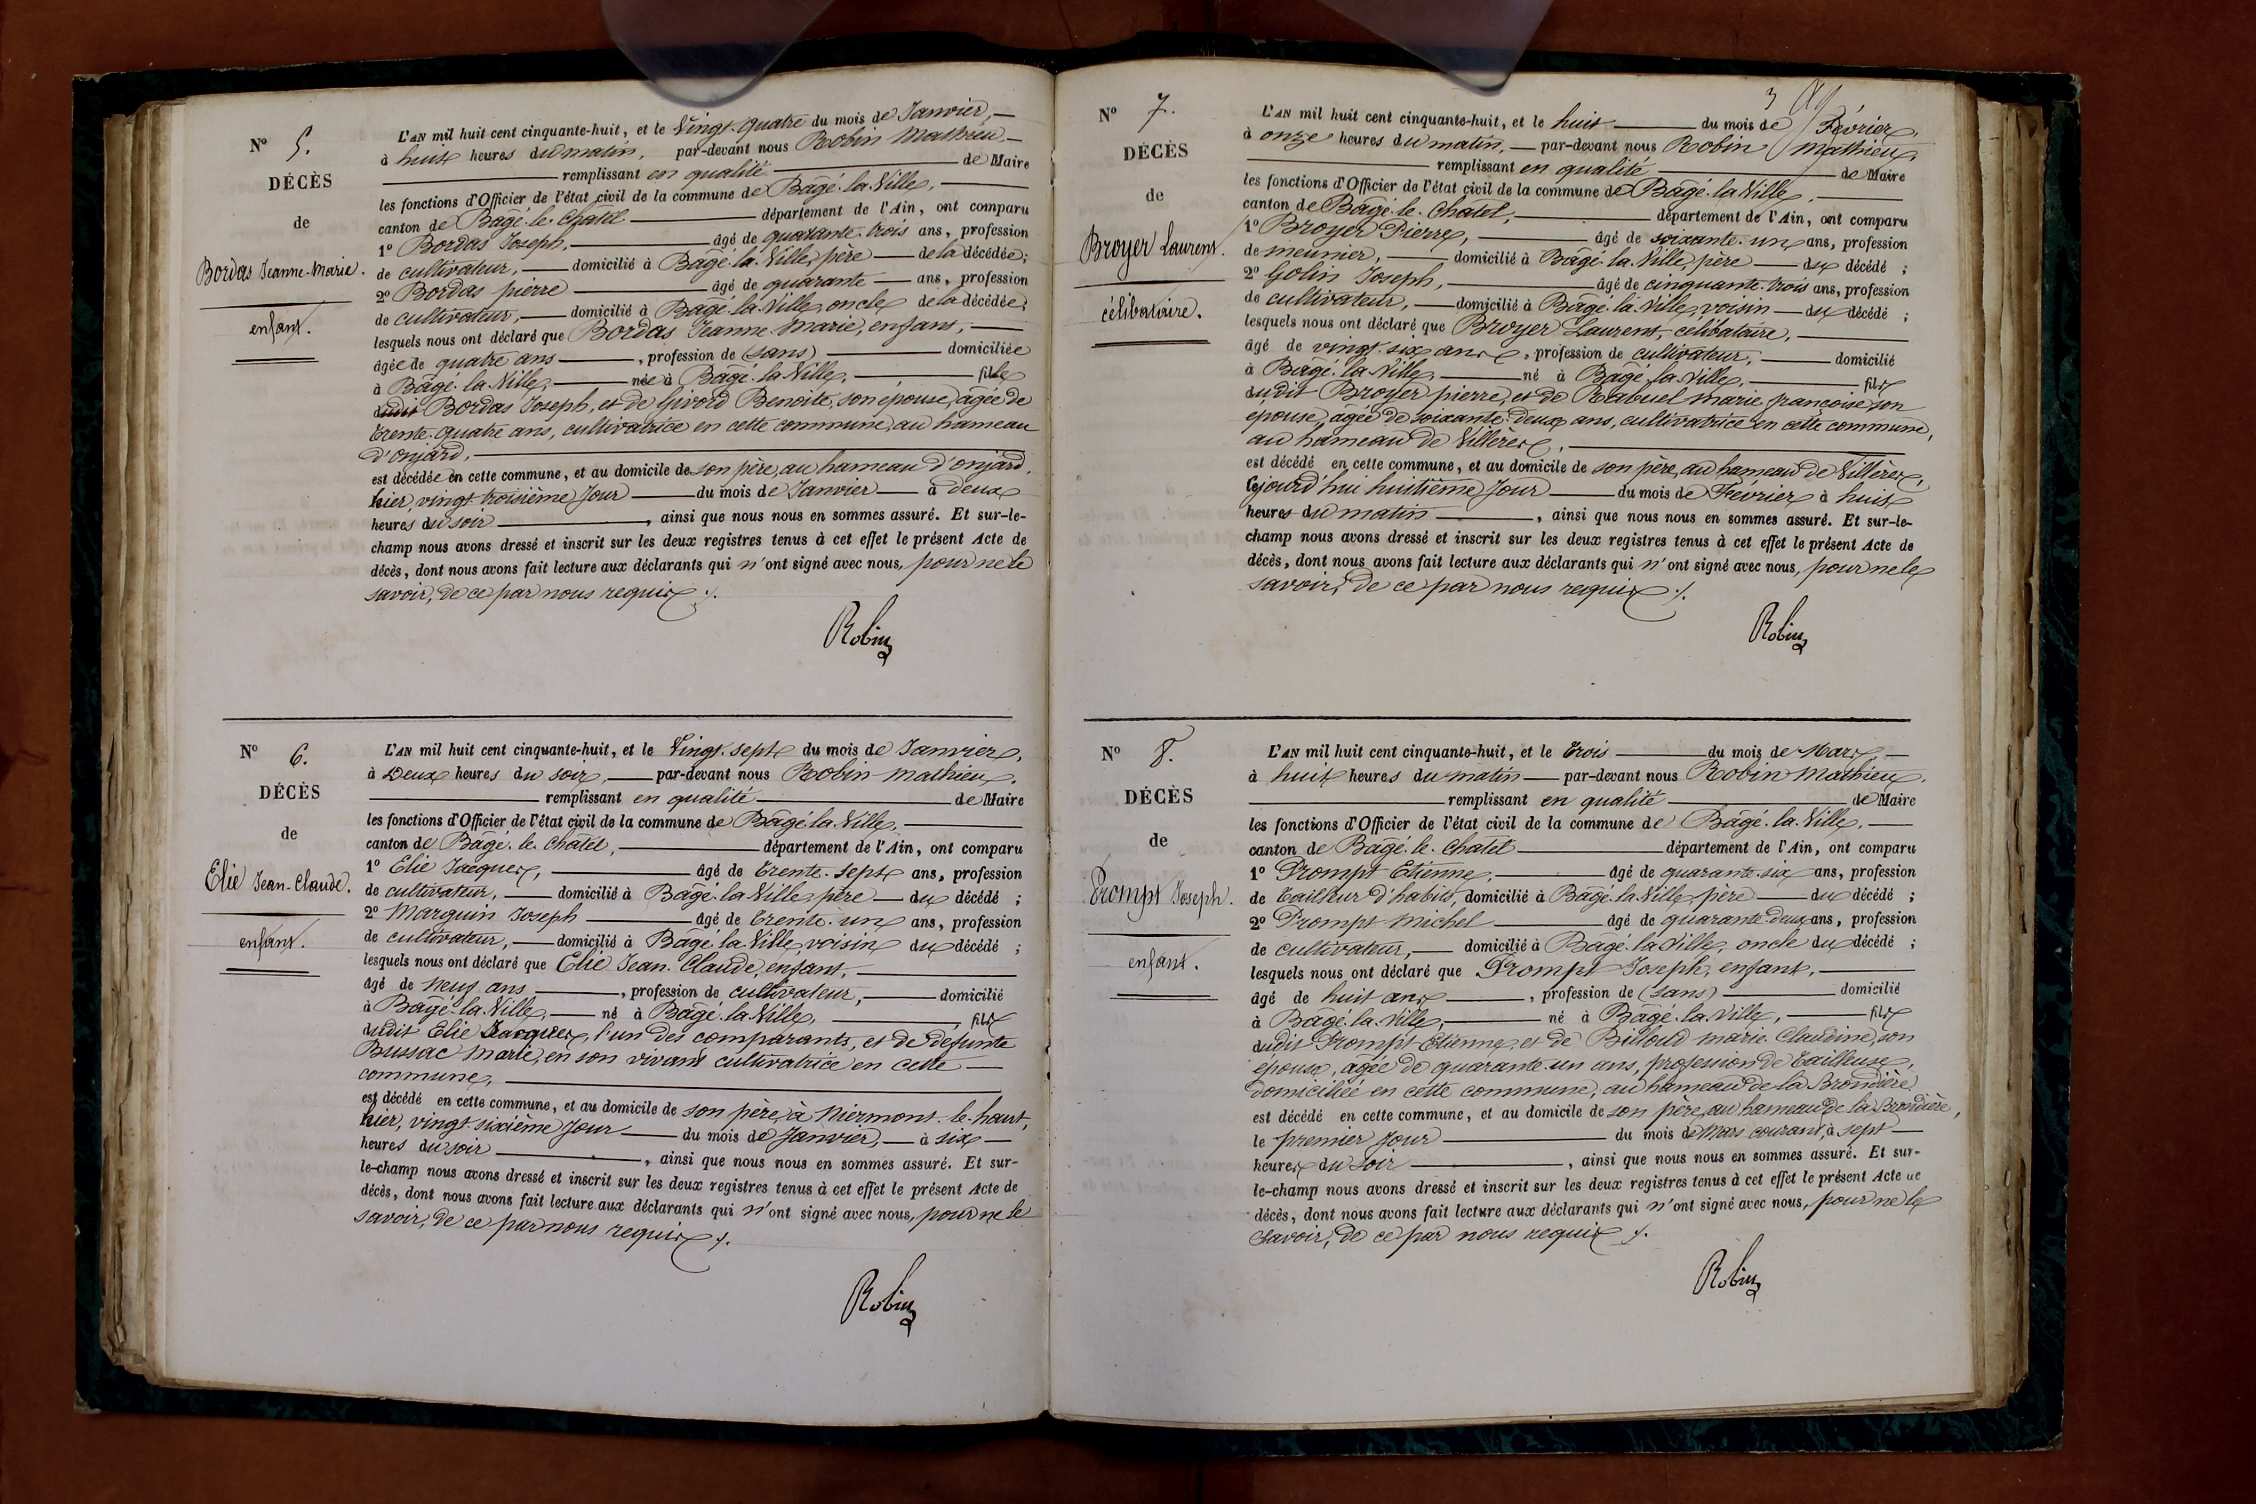 N° 5.
DÉCÈS
de
Bordas Jeanne-Marie.
enfant.
L'AN mil huit cent cinquante-huit, et le Vingt-quatre du mois de Janvier,
à huit heures du matin, par-devant nous Robin Mathieu
remplissant en qualité de Maire
les fonctions d'Officier de l'état civil de la commune de Bâgé-la-Ville,
canton de Bâgé-le-Châtel département de l'Ain, ont comparu
1° Bordas Joseph, âgé de quarante-trois ans, profession
de cultivateur, domicilié à Bâgé-la-Ville, père de la décédée;
2° Bordas pierre âgé de quarante ans, profession
de cultivateur, domicilié à Bâgé-la-Ville, oncle de la décédée;
lesquels nous ont déclaré que Bordas Jeanne Marie, enfant,
âgée de quatre ans, profession de (sans) domiciliée
à Bâgé-la-Ville, née à Bâgé-la-Ville, fille
dudit Bordas Joseph, et de Givord Benoite, son épouse, âgée de
trente-quatre ans, cultivatrice en cette commune, au hameau
d'onjard,
est décédée en cette commune, et au domicile de son père, au hameau d'onjard,
hier, vingt-troisième Jour du mois de Janvier à deux
heures du soir, ainsi que nous nous en sommes assuré. Et sur-le-
champ nous avons dressé et inscrit sur les deux registres tenus à cet effet le présent Acte de
décès, dont nous avons fait lecture aux déclarants qui n'ont signé avec nous, pour ne le
savoir, de ce par nous requis ./.
Robin
N° 6.
DÉCÈS
de
Elie Jean-Claude.
enfant.
L'AN mil huit cent cinquante-huit, et le Vingt-sept du mois de Janvier,
à Deux heures du soir, par-devant nous Robin Mathieu,
remplissant en qualité de Maire
les fonctions d'Officier de l'état civil de la commune de Bâgé-la-Ville,
canton de Bâgé-le-Châtel, département de l'Ain, ont comparu
1° Elie Jacques, âgé de trente-sept ans, profession
de cultivateur, domicilié à Bâgé-la-Ville, père du décédé ;
2° Marguin Joseph âgé de trente-un ans, profession
de cultivateur, domicilié à Bâgé-la-Ville, voisin du décédé ;
lesquels nous ont déclaré que Elie Jean-Claude, enfant,
âgé de neuf ans, profession de cultivateur, domicilié
à Bâgé-la-Ville, né à Bâgé-la-Ville, fils
dudit Elie Jacques, l'un des comparants, et de défunte
Bussac Marie, en son vivant cultivatrice en cette
commune,
est décédé en cette commune, et au domicile de son père, à Niermont-le-haut,
hier, vingt-sixième Jour du mois de Janvier, à six
heures du soir, ainsi que nous nous en sommes assuré. Et sur-
le-champ nous avons dressé et inscrit sur les deux registres tenus à cet effet le présent Acte de
décès, dont nous avons fait lecture aux déclarants qui n'ont signé avec nous, pour ne le
savoir, de ce par nous requis ./.
Robin
3
N° 7.
DÉCÈS
de
Broyer Laurent.
célibataire.
L'AN mil huit cent cinquante-huit, et le huit du mois de Février,
à onze heures du matin, par-devant nous Robin Mathieu,
remplissant en qualité de Maire
les fonctions d'Officier de l'état civil de la commune de Bâgé-la-Ville,
canton de Bâgé-le-Châtel, département de l'Ain, ont comparu
1° Broyer Pierre, âgé de soixante-un ans, profession
de meunier, domicilié à Bâgé-la-Ville, père du décédé ;
2° Golin Joseph, âgé de cinquante-trois ans, profession
de cultivateur, domicilié à Bâgé-la-Ville, voisin du décédé ;
lesquels nous ont déclaré que Broyer Laurent, célibataire,
âgé de vingt-six ans, profession de cultivateur, domicilié
à Bâgé-la-Ville, né à Bâgé-la-Ville, fils
dudit Broyer pierre, et de Rabuel marie françoise, son
épouse, âgée de soixante-deux ans, cultivatrice en cette commune,
au hameau de Villères,
est décédé en cette commune, et au domicile de son père, au hameau de Villères,
cejourd'hui huitième Jour du mois de Février à huit
heures du matin, ainsi que nous nous en sommes assuré. Et sur-le-
champ nous avons dressé et inscrit sur les deux registres tenus à cet effet le présent Acte de
décès, dont nous avons fait lecture aux déclarants qui n'ont signé avec nous, pour ne le
savoir, de ce par nous requis ./.
Robin
N° 8.
DÉCÈS
de
Prompt Joseph.
enfant.
L'AN mil huit cent cinquante-huit, et le trois du mois de Mars,
à huit heures du matin par-devant nous Robin Mathieu,
remplissant en qualité de Maire
les fonctions d'Officier de l'état civil de la commune de Bâgé-la-Ville,
canton de Bâgé-le-Châtel département de l'Ain, ont comparu
1° Prompt Etienne, âgé de quarante-six ans, profession
de tailleur d'habits, domicilié à Bâgé-la-Ville, père du décédé ;
2° Prompt Michel âgé de quarante-deux ans, profession
de cultivateur, domicilié à Bâgé-la-Ville, oncle du décédé ;
lesquels nous ont déclaré que Prompt Joseph, enfant,
âgé de huit ans, profession de (sans) domicilié
à Bâgé-la-Ville, né à Bâgé-la-Ville, fils
dudit Prompt Etienne, et de Billoud marie Claudine, son
épouse, âgée de quarante-un ans, profession de tailleuse,
domiciliée en cette commune, au hameau de la Brondière
est décédé en cette commune, et au domicile de son père, au hameau de la Brondière,
le premier Jour du mois de Mars courant, à sept
heures du soir, ainsi que nous nous en sommes assuré. Et sur-
le-champ nous avons dressé et inscrit sur les deux registres tenus à cet effet le présent Acte de
décès, dont nous avons fait lecture aux déclarants qui n'ont signé avec nous, pour ne le
savoir, de ce par nous requis ./.
Robin